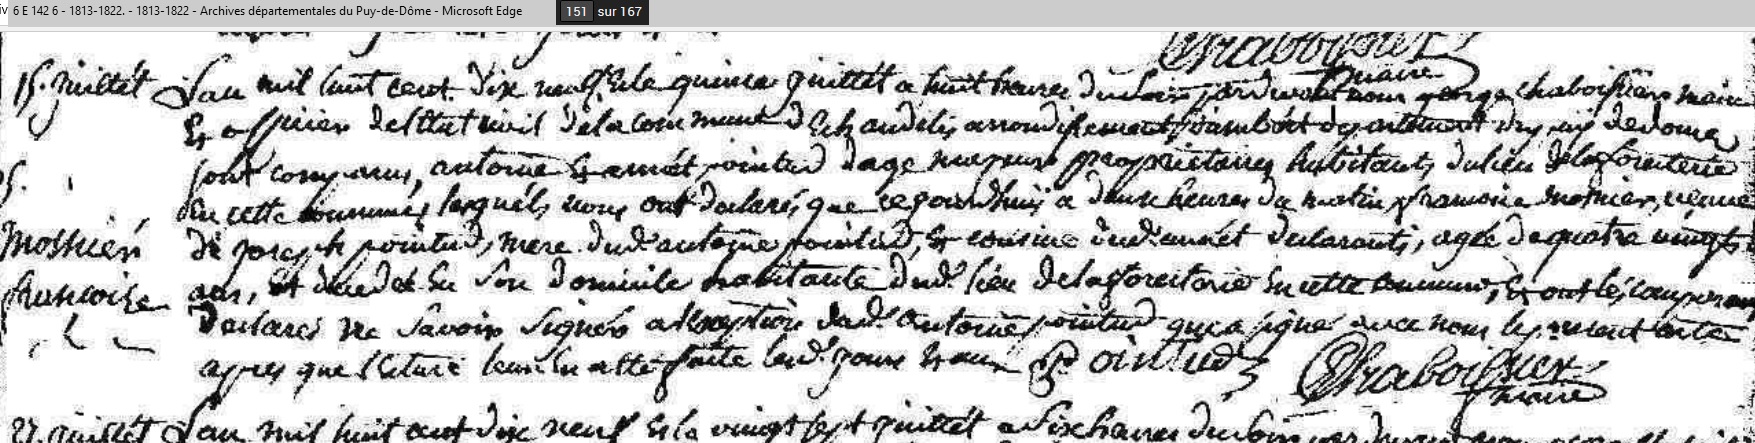 6 E 142 6 - 1813-1822. - 1813-1822 - Archives départementales du Puy-de-Dôme - Microsoft Edge
151 sur 167
Chaboissier
maire
15. juillét L'an mil huit cent dix neuf & le quinze juillét a huit heures du soir pardevant nous george chaboissier maire
Et officier de l'état civil de la commune d'Echandelis arrondissement d'ambért département du puy de dome
sont comparus, antoine & annét pointud d'age majeurs propriétaires habitants du lieu de la foreiterie
En cette commune, lesquéls nous ont déclarés, que ce jourd'huis a deux heures du matin, francoise mosnier, veuve
Mosnier
de joseph pointud, mere dud. antoine pointud, & cousine dud. annét declarants, agée de quatre vingts
francoise
ans, est décédée En son domicile habitante dud. lieu de la foreiterie En cette commune, & ont les comparants
déclarés ne savoir signér a l'exception dud. antoine pointud qui a signé avec nous le présent acte
apres que lecture leur En a été faite lesd. jours & an Pointud Chaboissier
maire
27. juillét L'an mil huit cent dix neuf & le vingt sept juillét a six heures du soir pardevant nous